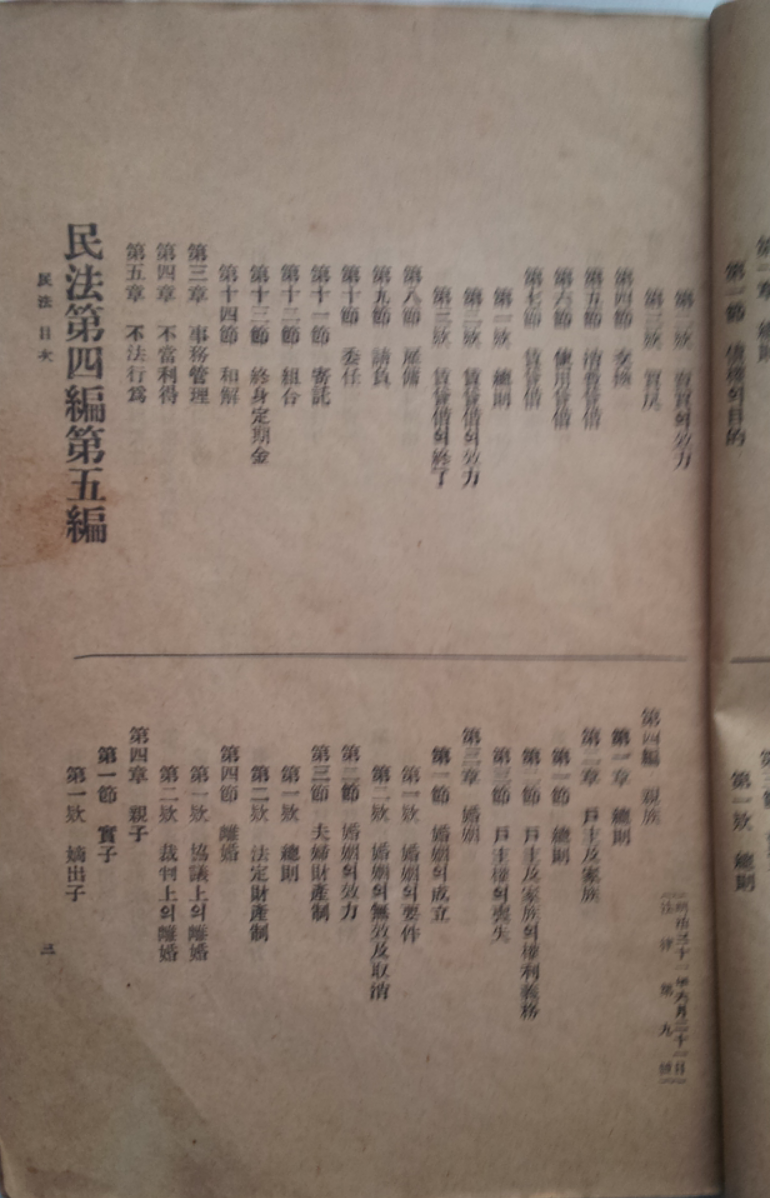 第一章 總則
第一節 債權의目的
第一欵 總則
第二欵 賣買의效力
第三欵 買戾
第四節 交換
第五節 消費貸借
第六節 使用貸借
第七節 賃貸借
第一欵 總則
第二欵 賃貸借의效力
第三欵 賃貸借의終了
第八節 雇傭
第九節 請負
第十節 委任
第十一節 寄託
第十二節 組合
第十三節 終身定期金
第十四節 和解
第三章 事務管理
第四章 不當利得
第五章 不法行爲
民法第四編第五編
明治三十一年六月二十一日
法律第九號
第四編 親族
第一章 總則
第二章 戶主及家族
第一節 總則
第二節 戶主及家族의權利義務
第三節 戶主權의喪失
第三章 婚姻
第一節 婚姻의成立
第一欵 婚姻의要件
第二欵 婚姻의無效及取消
第二節 婚姻의效力
第三節 夫婦財產制
第一欵 總則
第二欵 法定財產制
第四節 離婚
第一欵 協議上의離婚
第二欵 裁判上의離婚
第四章 親子
第一節 實子
第一欵 嫡出子
民法 目次
三